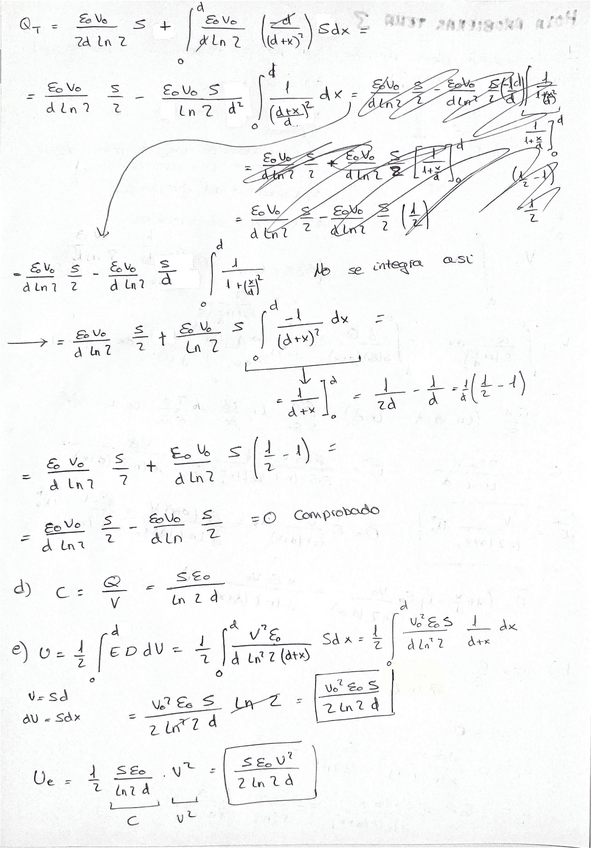 Q_T = ε₀V₀/(2d Ln 2) S + ∫₀^d ε₀V₀/(d Ln 2) (-d/(d+x)²) S dx =
= ε₀V₀/(d Ln 2) S/2 - ε₀V₀ S/(Ln 2 d²) ∫₀^d 1/((d+x)/d)² dx = ε₀V₀/(d Ln 2) S/2 - ε₀V₀
= ε₀V₀/(d Ln 2) S/2 + ε₀V₀/(d Ln 2) S/2 [1/(1+x/d)]₀^d
1/(1+x/d)]₀^d
(1/2 - 1)
1/2
= ε₀V₀/(d Ln 2) S/2 - ε₀V₀/(d Ln 2) S/2 (1/2)
= ε₀V₀/(d Ln 2) S/2 - ε₀V₀/(d Ln 2) S/d ∫₀^d 1/(1+(x/d)²) No se integra así
→ = ε₀V₀/(d Ln 2) S/2 + ε₀V₀/(Ln 2) S ∫₀^d -1/(d+x)² dx =
= 1/(d+x)]₀^d = 1/(2d) - 1/d = 1/d (1/2 - 1)
= ε₀V₀/(d Ln 2) S/2 + ε₀V₀/(d Ln 2) S (1/2 - 1) =
= ε₀V₀/(d Ln 2) S/2 - ε₀V₀/(d Ln) S/2 = 0 Comprobado
d) C = Q/V = Sε₀/(Ln 2 d)
e) U = 1/2 ∫₀^d E D dV = 1/2 ∫₀^d V²ε₀/(d Ln²2 (d+x)) S dx = 1/2 ∫₀^d V₀²ε₀S/(d Ln²2) 1/(d+x) dx
V = Sd
dV = Sdx
= V₀²ε₀S/(2 Ln²2 d) Ln 2 = V₀²ε₀S/(2 Ln 2 d)
Ue = 1/2 Sε₀/(Ln 2 d) · V² = Sε₀V²/(2 Ln 2 d)
C V²